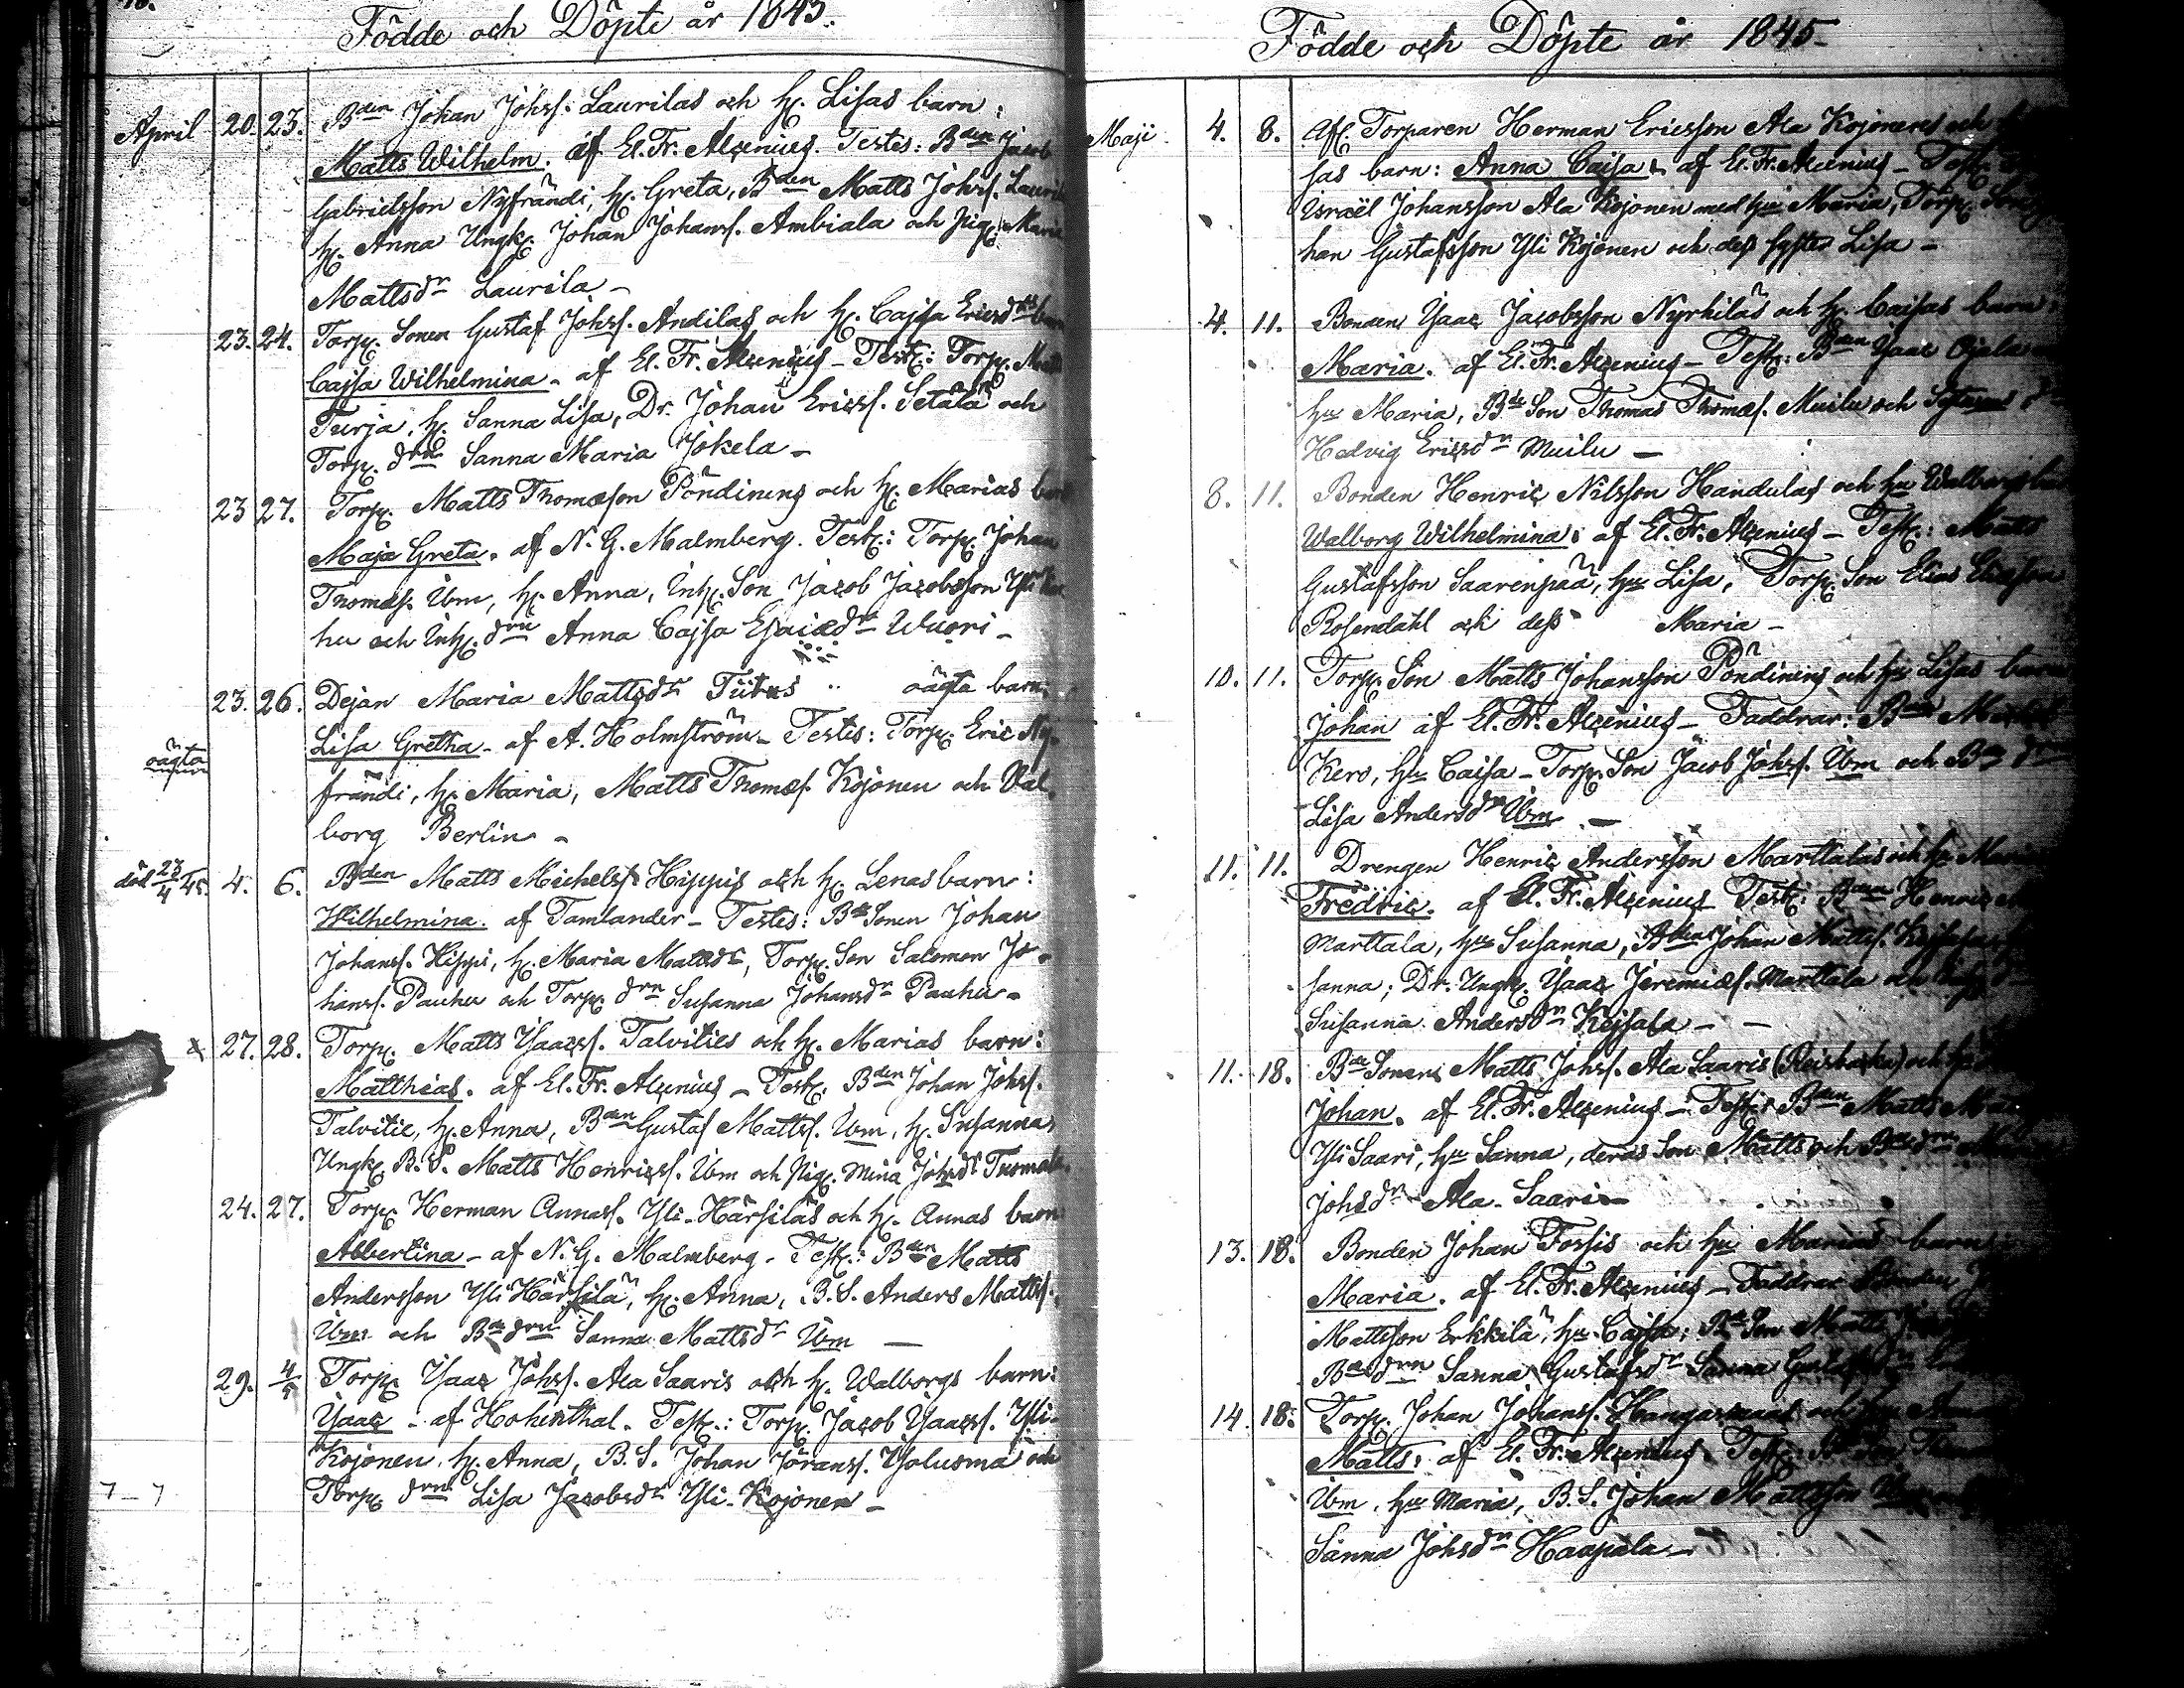 Födde och Döpte år 1845.
April 20. 23. Bden Johan Johss. Laurilas och h. Lisas barn:
Matts Wilhelm. af El. Fr. Alcenius. Testes: Bden Jacob
Gabrielsson Nyfrändi, h. Greta, Bden Matts Johss.
h. Anna Ungk. Johan Johanss. Ambiala och Pig. Maria
Mattsdr Laurila –
23. 24. Torp. Sonen Gustaf Johss. Andilas och h. Cajsa Ericsdrs
Cajsa Wilhelmina – af El. Fr. Alcenius – Test.: Torp.
Turja, h. Sanna Lisa, Dr. Johan Ericss. Setälä och
Torp. drn Sanna Maria Jokela –
23 27. Torp. Matts Thomæson Pöndinens och h. Marias
Maja Greta. af N. G. Malmberg. Test.: Torp. Johan
Thomæs. Ibm, h. Anna, Inh. Son Jacob Jacobsson
hu och Inh. drn Anna Cajsa Esaiædr Wuori –
23. 26. Dejan Maria Mattsdr Tiitus oägta barn
Lisa Gretha – af A. Holmström – Testes: Torp. Eric Ny-
oägta
frändi, h. Maria, Matts Thomæs. Kojonen och Wal
borg Berlin –
död 23/4 45. 4. 6. Bden Matts Michelss. Hippis och h. Lenas barn:
Wilhelmina. af Tamlander – Testes: Bde Sonen Johan
Johanss. Hippi, h. Maria Mattsdr, Torp. Son Salomon Jo-
hanss. Pauhu och Torp. drn Susanna Johansdr Pauhu –
27. 28. Torp. Matts Ysaacss. Talvities och h. Marias barn:
Matthias. af El. Fr. Alcenius – Test. Bden Johan Johss.
Talvitie, h. Anna, Bden Gustaf Mattss. Ibm, h. Susanna,
Ungk. B. S. Matts Henricss. Ibm och Pig. Mina Johsdr
24. 27. Torp. Herman Annass. Yli-Härsiläs och h. Annas barn
Albertina – af N. G. Malmberg – Test.: Bden Matts
Andersson Yli Härsilä, h. Anna, B. S. Anders Mattss.
Ibm och Bde drn Sanna Mattsdr Ibm –
29. 4/5 Torp. Ysaac Johss. Ala Saaris och h. Walborgs barn:
Ysaac – af Hohenthal – Test.: Torp. Jacob Ysaacss. Yli-
Kojonen, h. Anna, B. S. Johan Jöranss. Ysoluoma och
7 – 7 Torp. drn Lisa Jacobsdr Yli-Kojonen –
Födde och Döpte år 1845
Maji 4. 8. Afl. Torparen Herman Ericsson Ala Kojonens och
sas barn: Anna Caisa – af El. Fr. Alcenius – Test.
Israël Johansson Ala Kojonen med hu Maria, Torp. Son
han Gustafsson Yli Kojonen och dess syster Lisa –
4. 11. Bonden Ysaac Jacobsson Nyrhiläs och h. Caisas barn
Maria. af El. Fr. Alcenius – Test.: Bden Ysaac Ojala
hu Maria, Bde Son Thomas Thomæs. Muilu och
Hedvig Ericsdr Muilu –
8. 11. Bonden Henric Nilsson Handulas och hu Walborgs
Walborg Wilhelmina: af El. Fr. Alcenius – Test.: Matts
Gustafsson Saarenpää, hu Lisa, Torp. Son Elias Eliasson
Rosendahl och dess Maria –
10. 11. Torp. Son Matts Johansson Pöndinens och hu Lisas barn
Johan af El. Fr. Alcenius – Faddrar: Bden
Kero, hu Caisa – Torp. Son Jacob Johss. Ibm och Bde
Lisa Andersdr Ibm –
11. 11. Drengen Henric Andersson Marttalas och h.
Fredric. af El. Fr. Alcenius Test: Bden Henric
Marttala, hu Susanna, Bden Johan Mattss.
sanna; Dr. Ungk. Ysaac Jeremiæs. Marttala och
Susanna Andersdr Keisala –
11. 18. Bde Sonens Matts Johss. Ala Saaris och hu
Johan. af El. Fr. Alcenius – Test: Bden Matts
Yli Saari, hu Sanna, deras Son Matts och Bde drn
Johsdr Ala-Saari –
13. 18. Bonden Johan Fossis och hu Marias barn
Maria. af El. Fr. Alcenius – Faddrar Bonden
Mattsson Erkkilä, hu Cajsa; Bde Son Matts
Bde drn Sanna Gustafsdr Sanna
14. 18. Torp. Johan Johanss. Hangasmaas och hu
Matts: af El. Fr. Alcenius. Test:
Ibm, hu Maria, B. S. Johan Mattsson
Sanna Johsdr Haapala –